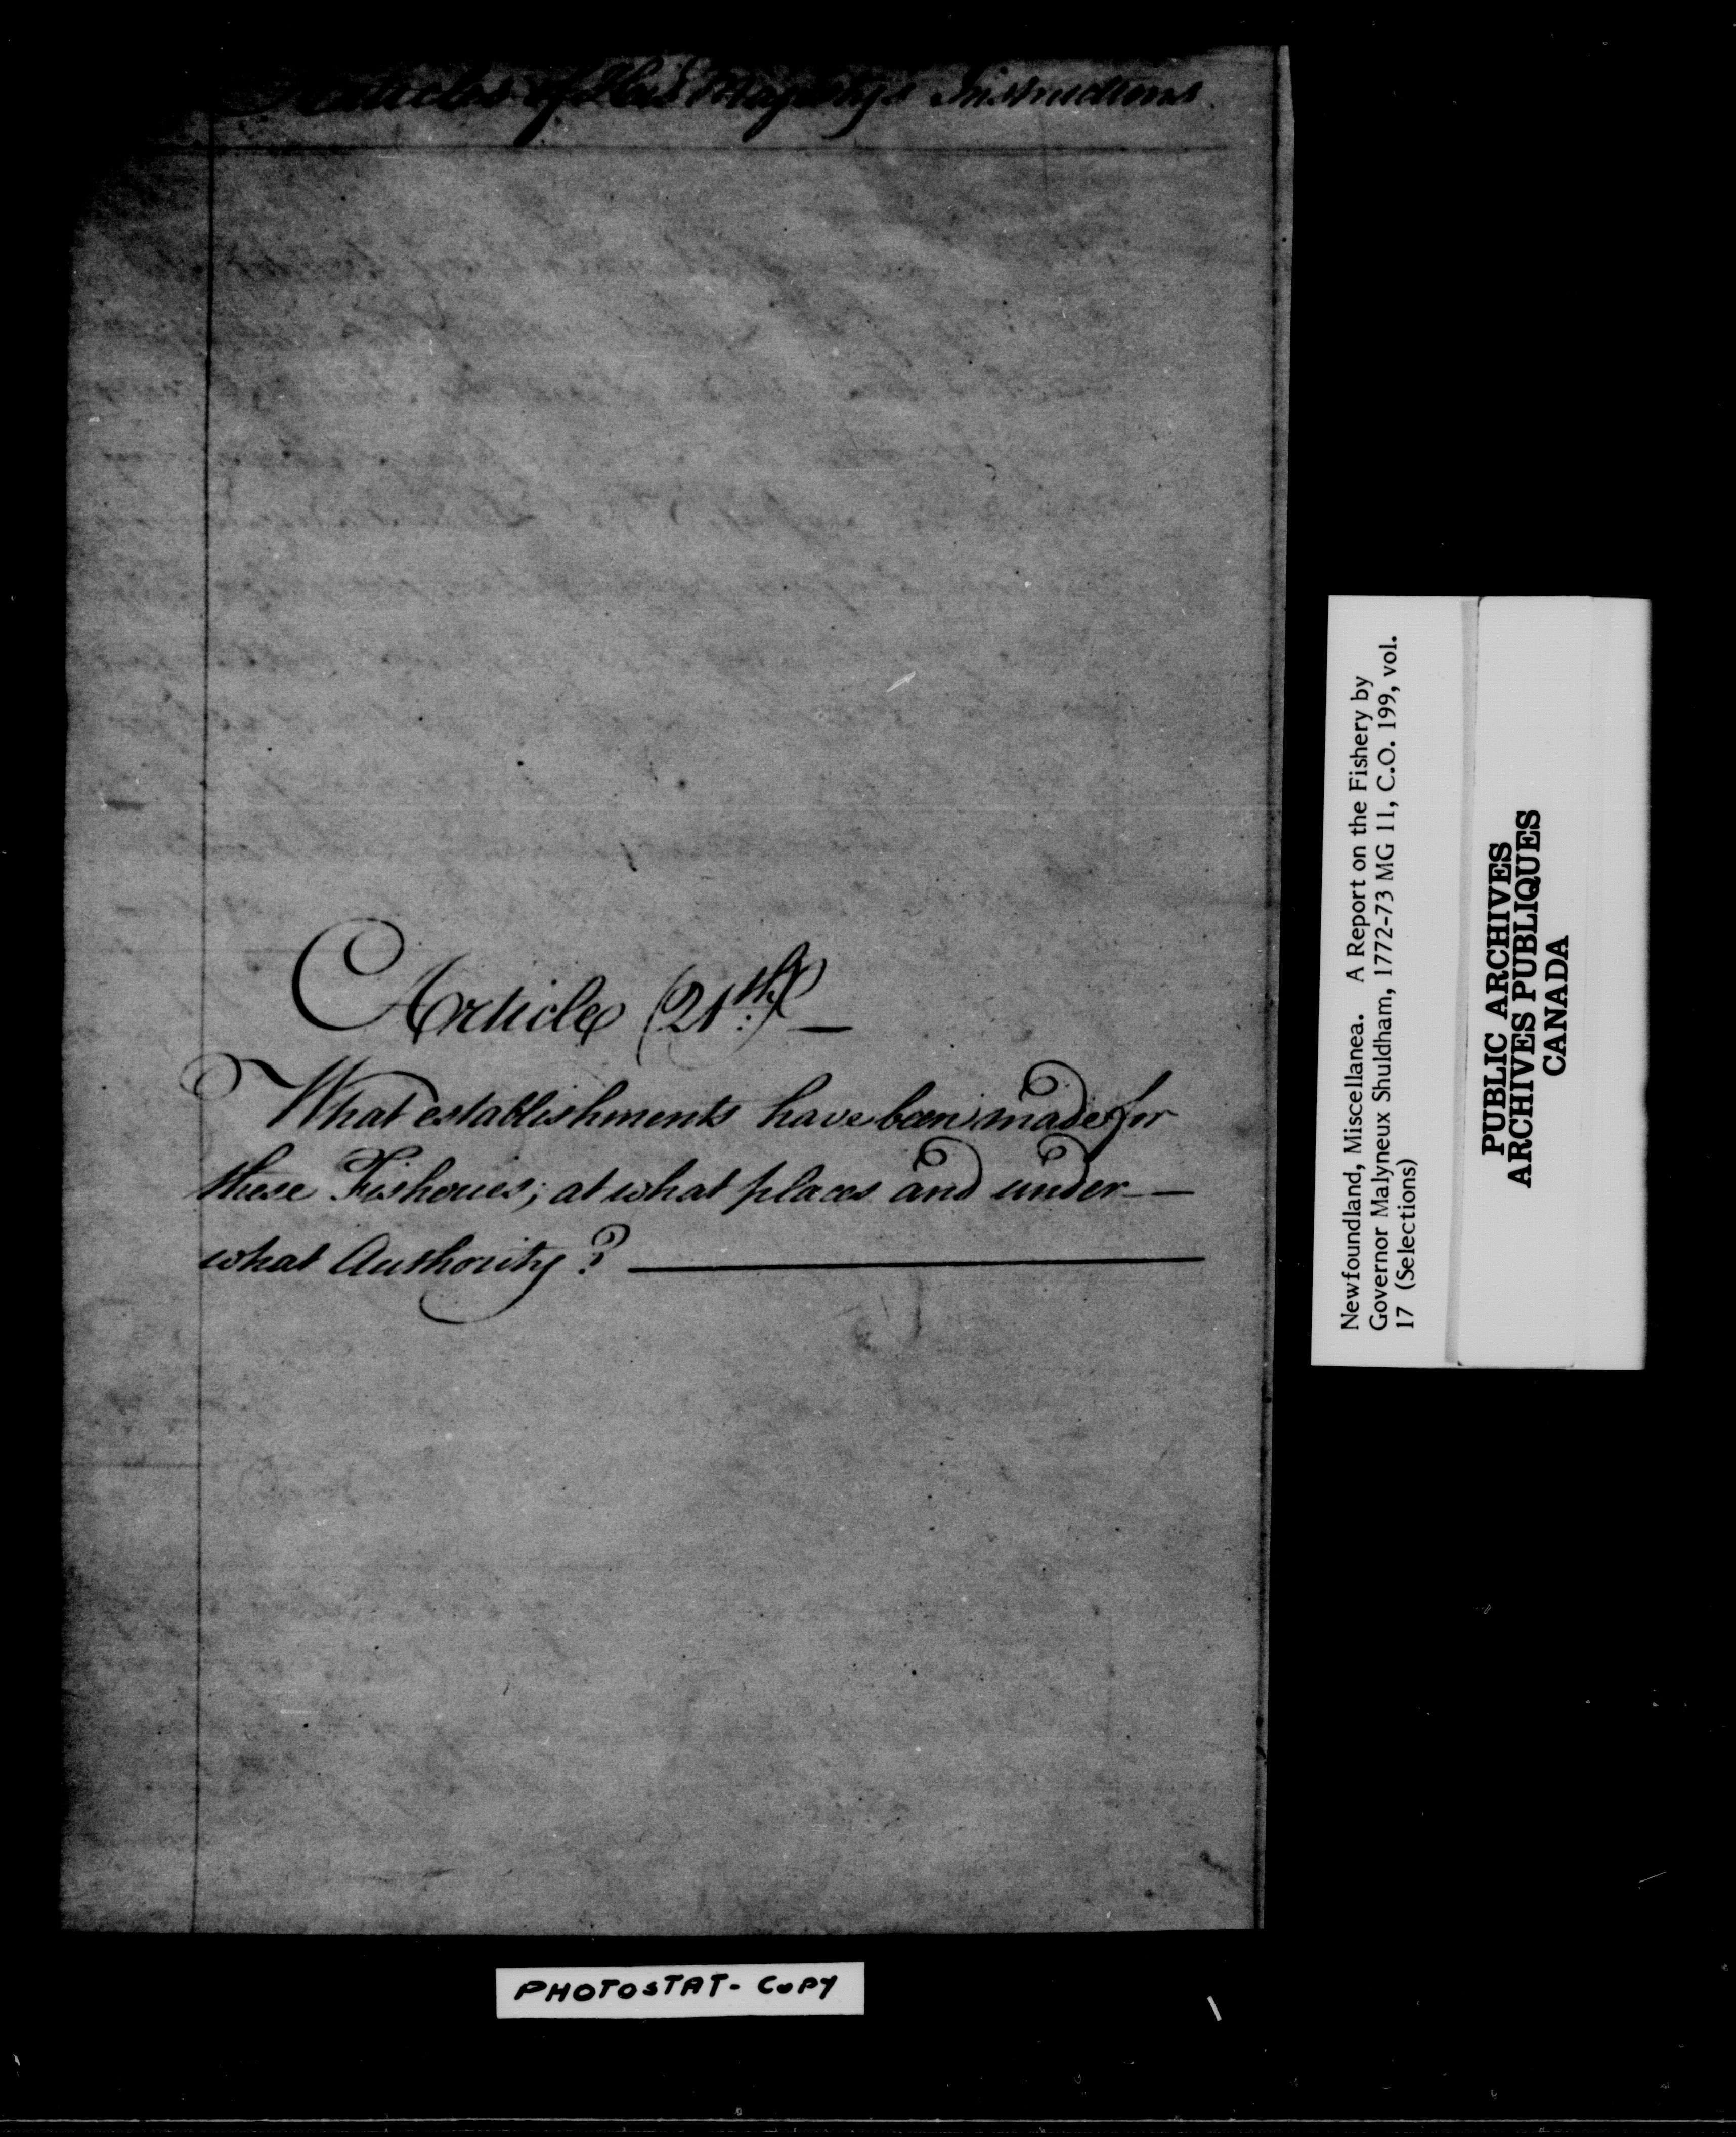 Articles of His Majesty's Instructions
Article (21.th)
What establishments have been made for
these Fisheries; at what places and under
what Authority?
Newfoundland, Miscellanea. A Report on the Fishery by
Governor Malyneux Shuldham, 1772-73 MG 11, C.O. 199, vol.
17 (Selections)
PUBLIC ARCHIVES
ARCHIVES PUBLIQUES
CANADA
PHOTOSTAT- COPY